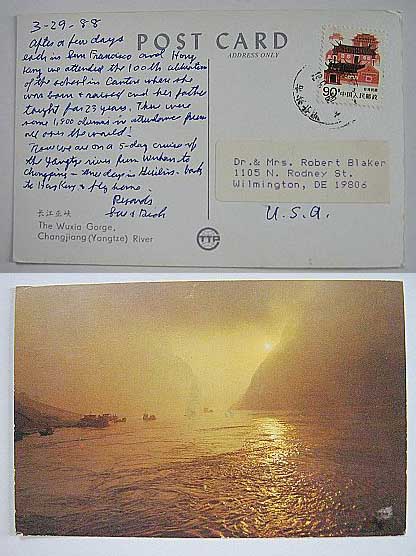 3-29-88
After a few days
each in San Francisco and Hong
Kong we attended the 100th celebration
of the school in Canton where she
was born & raised and her father
taught for 23 years. There were
some 1,500 alumni in attendance from
all over the world!
Now we are on a 5-day cruise up
the Yangtze river from Wuhan to
Chongqing - one day in Guilin - back
to Hong Kong & fly home.
Regards
POST CARD
ADDRESS ONLY
90分 中国人民邮政
Dr.& Mrs. Robert Blaker
1105 N. Rodney St.
Wilmington, DE 19806
U.S.A.
长江巫峡
The Wuxia Gorge,
Changjiang (Yangtze) River
TTP